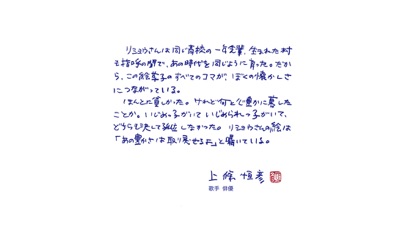 リミョウさんは同じ高校の一年先輩、生まれた村
も指呼の間で、あの時代を同じように育った。だか
ら、この絵草子のすべてのコマが、ぼくの懐かしさ
につながっている。
ほんとに貧しかった。けれど何と心豊かに暮した
ことか。いじめっ子がいていじめられっ子がいて、
どちらも決して孤立しなかった。リミョウさんの絵は
「あの豊かさは取り戻せるよ」と囁いている。
上條恒彦
歌手 俳優